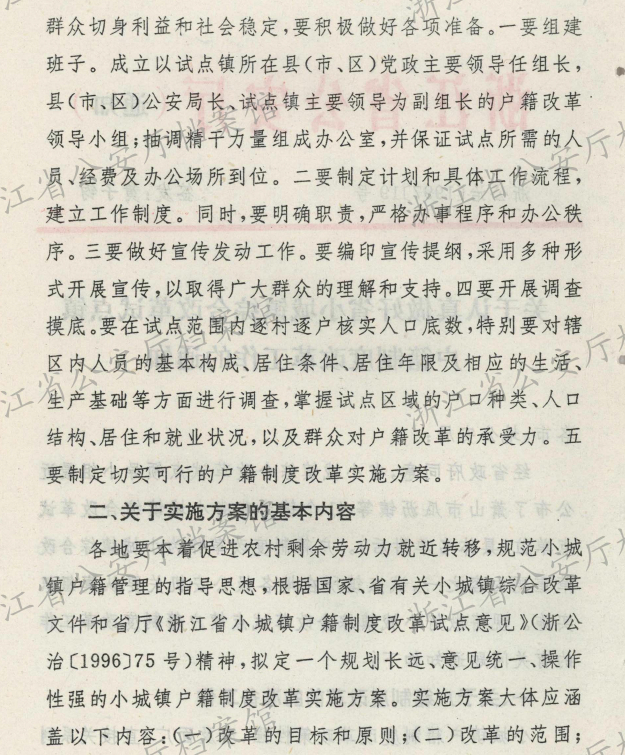 群众切身利益和社会稳定,要积极做好各项准备。一要组建
班子。成立以试点镇所在县(市、区)党政主要领导任组长,
县(市、区)公安局长、试点镇主要领导为副组长的户籍改革
领导小组;抽调精干力量组成办公室,并保证试点所需的人
员、经费及办公场所到位。二要制定计划和具体工作流程,
建立工作制度。同时,要明确职责,严格办事程序和办公秩
序。三要做好宣传发动工作。要编印宣传提纲,采用多种形
式开展宣传,以取得广大群众的理解和支持。四要开展调查
摸底。要在试点范围内逐村逐户核实人口底数,特别要对辖
区内人员的基本构成、居住条件、居住年限及相应的生活、
生产基础等方面进行调查,掌握试点区域的户口种类、人口
结构、居住和就业状况,以及群众对户籍改革的承受力。五
要制定切实可行的户籍制度改革实施方案。
二、关于实施方案的基本内容
各地要本着促进农村剩余劳动力就近转移,规范小城
镇户籍管理的指导思想,根据国家、省有关小城镇综合改革
文件和省厅《浙江省小城镇户籍制度改革试点意见》(浙公
治〔1996〕75号)精神,拟定一个规划长远、意见统一、操作
性强的小城镇户籍制度改革实施方案。实施方案大体应涵
盖以下内容:(一)改革的目标和原则;(二)改革的范围;